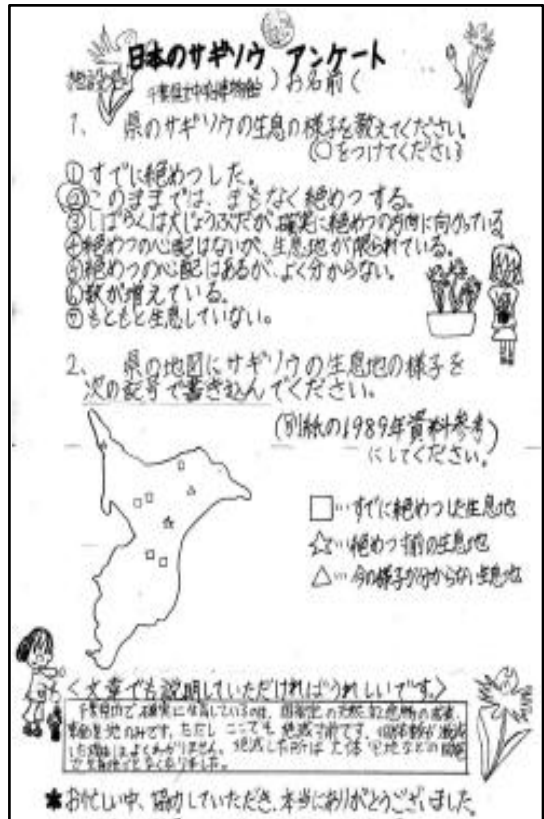 日本のサギソウ アンケート
施設名( 千葉県立中央博物館 )お名前(
1、 県のサギソウの生息の様子を教えてください。
(○をつけてください)
①すでに絶めつした。
②このままでは、まもなく絶めつする。
③しばらくは大じょうぶだが、確実に絶めつの方向に向かっている
④絶めつの心配はないが、生息地が限られている。
⑤絶めつの心配はあるが、よく分からない。
⑥数が増えている。
⑦もともと生息していない。
2、 県の地図にサギソウの生息地の様子を
次の記号で書き込んでください。
(別紙の1989年資料参考)
にしてください。
□…すでに絶めつした生息地
☆…絶めつ寸前の生息地
△…今の様子が分からない生息地
<文章でも説明していただければうれしいです。>
千葉県内で確実に生育しているのは、国指定の天然記念物の成東、
東金食虫のみです。ただし、ここでも絶滅寸前です。個体数が激減
した理由はよくわかりません。絶滅した所は大体宅地などの開発
で
*お忙しい中、協力していただき、本当にありがとうございました。